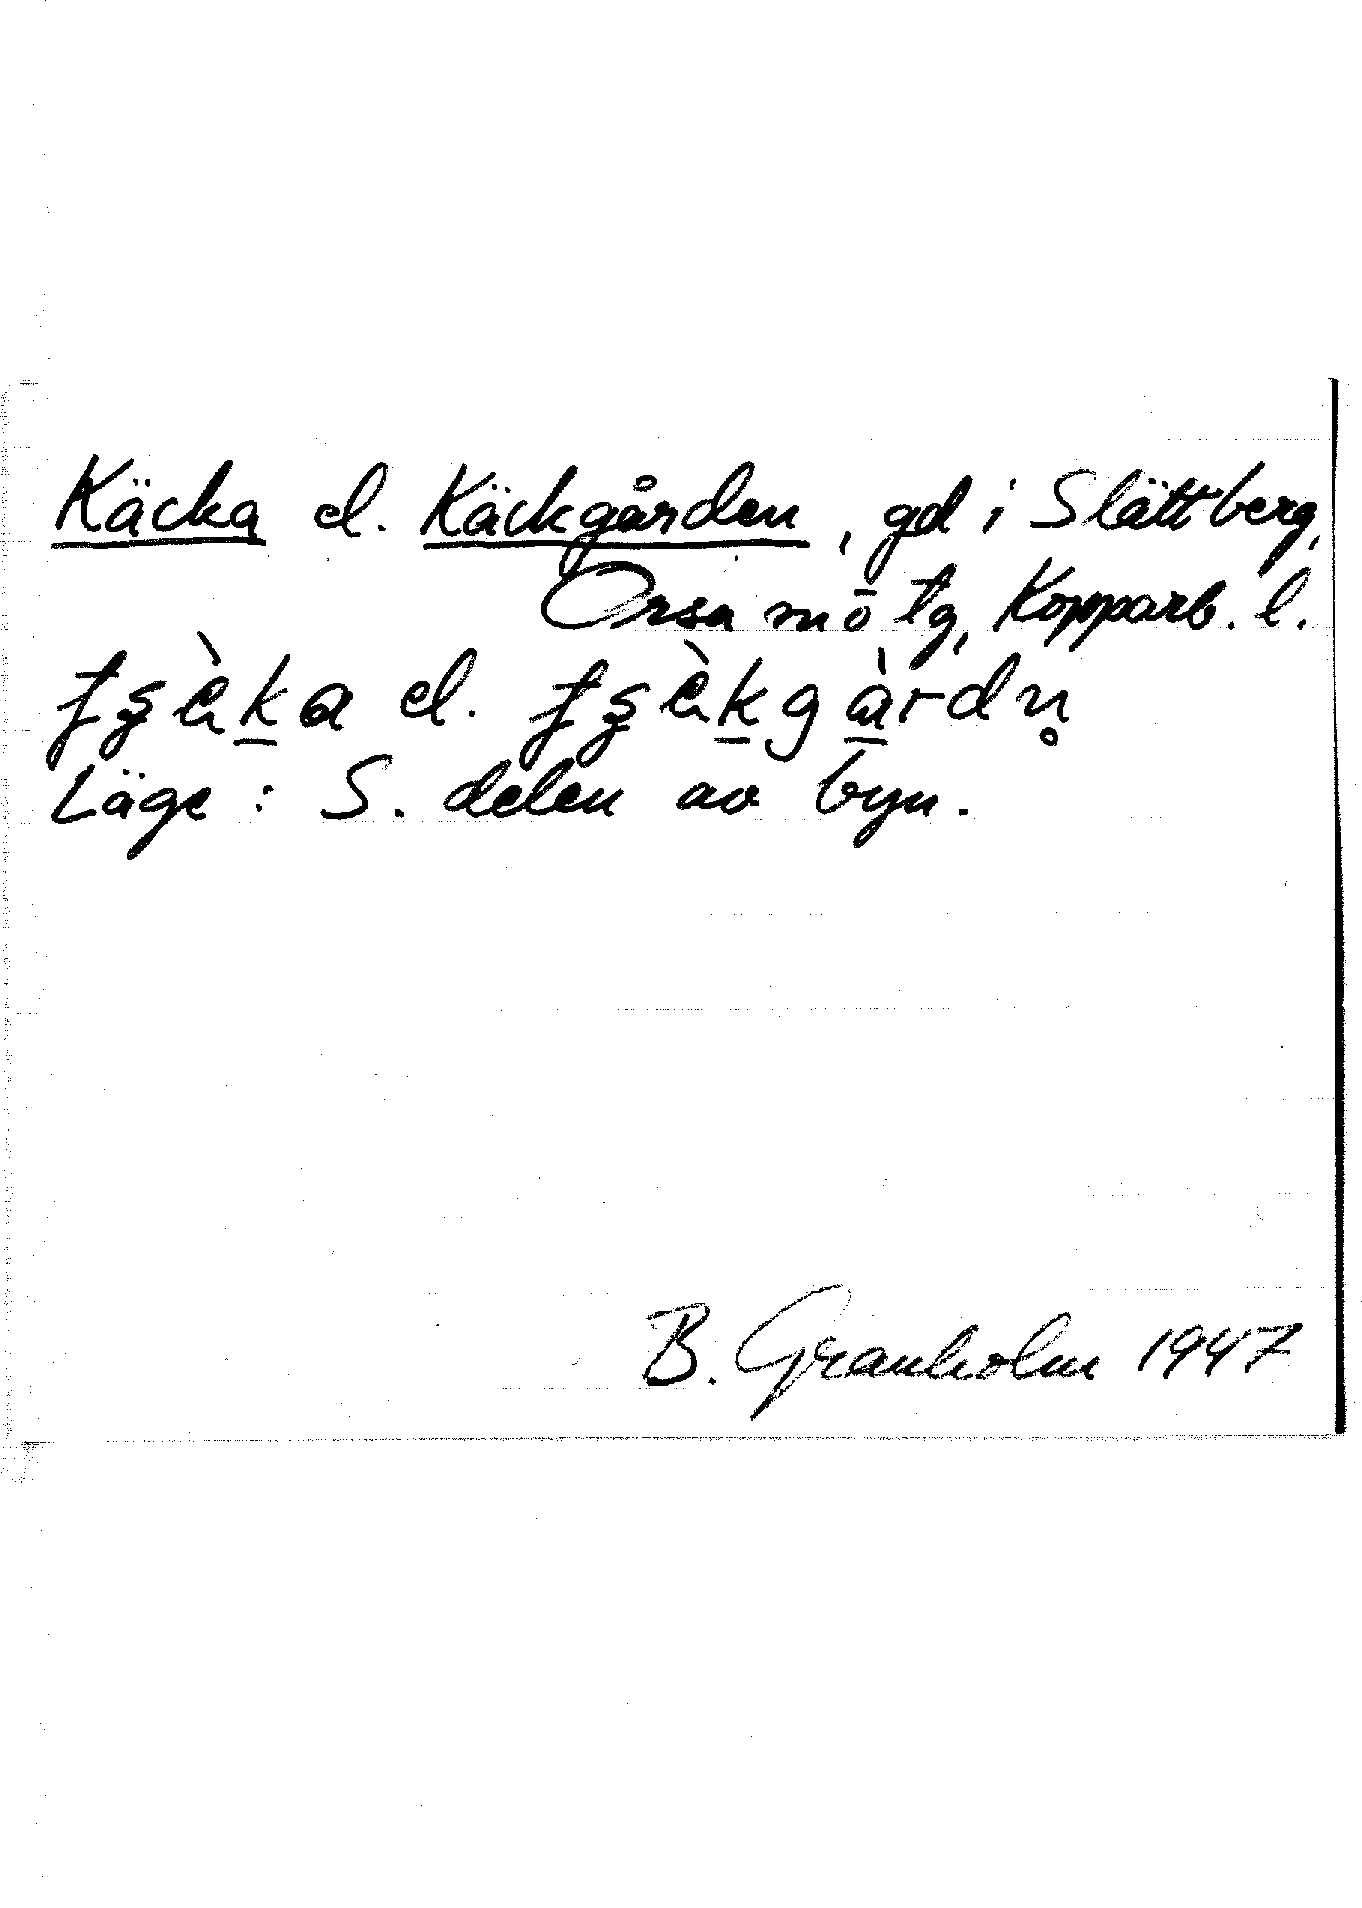 Käcka el. Käckgården, gd i Slättberg,
Orsa mō tg, Kopparb. l.
ƭʂὲk̲a el. ƭʂὲk̲gà̲rdn̥
Läge: S. delen av byn.
B. Granholm 1947